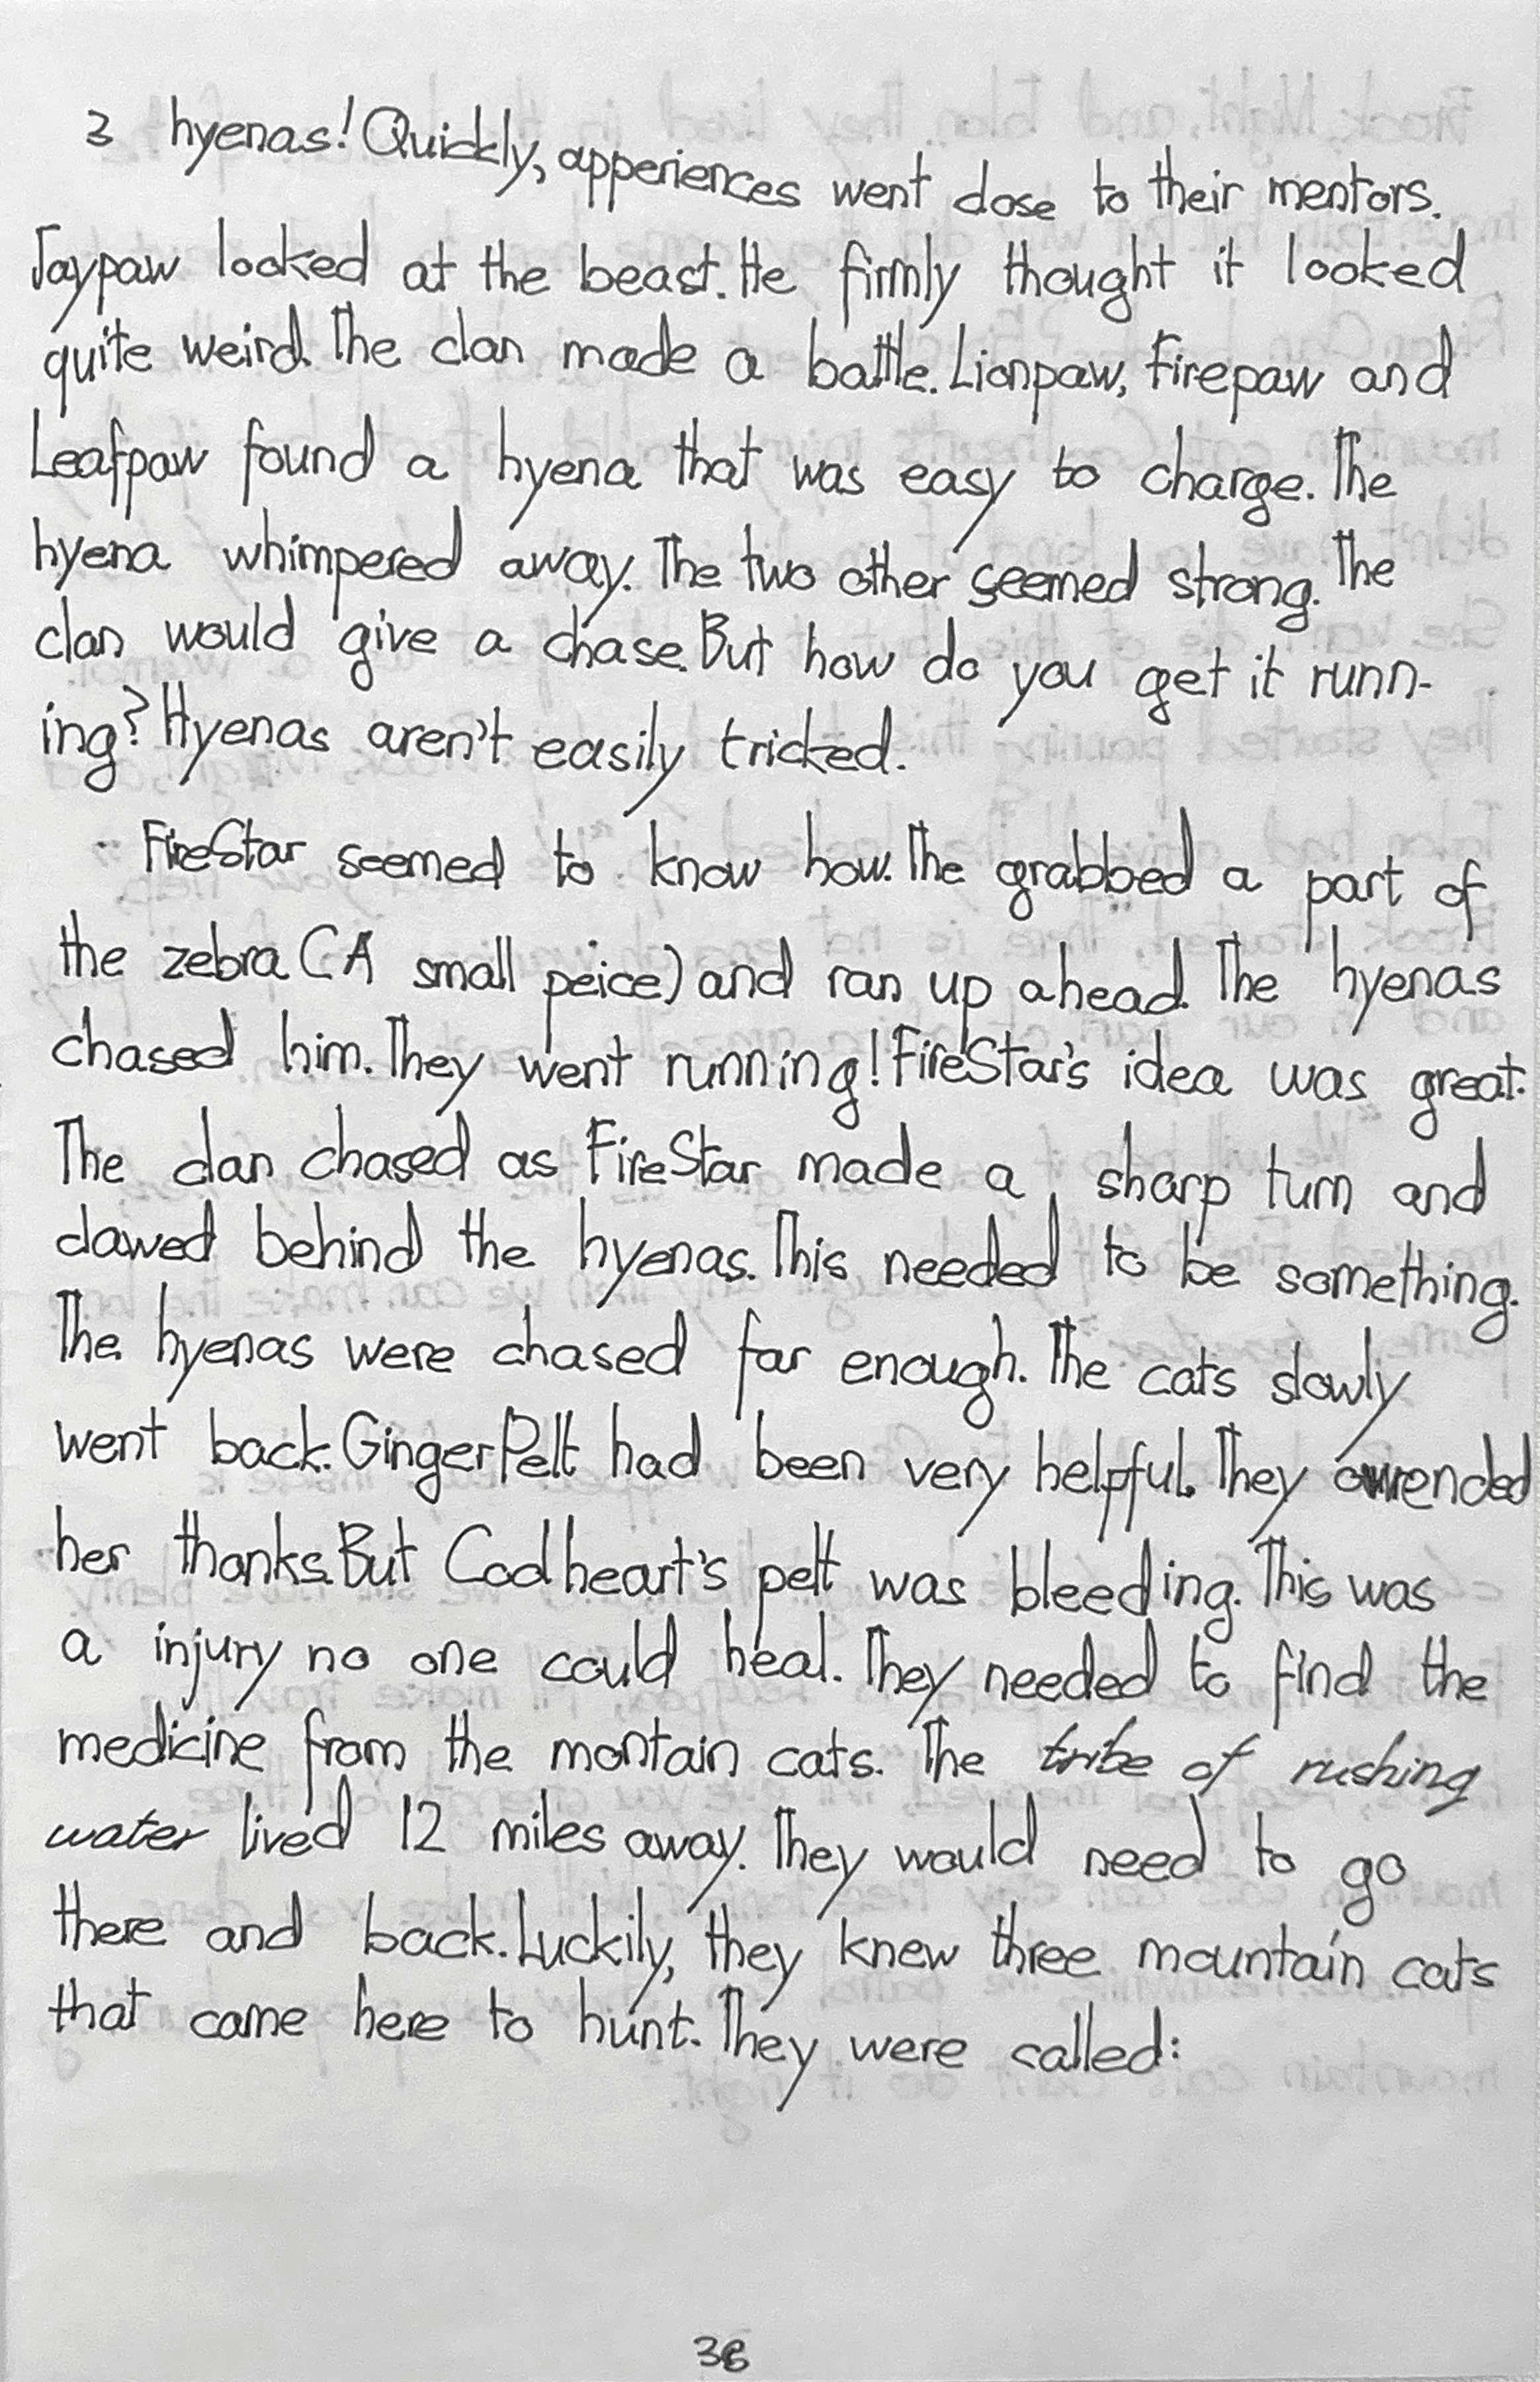 3 hyenas! Quickly, apperiences went close to their mentors.
Jaypaw looked at the beast. He firmly thought it looked
quite weird. The clan made a battle. Lionpaw, Firepaw and
Leafpaw found a hyena that was easy to charge. The
hyena whimpered away. The two other seemed strong. The
clan would give a chase. But how do you get it runn-
ing? Hyenas aren't easily tricked.
FireStar seemed to know how. The grabbed a part of
the zebra (A small peice) and ran up ahead. The hyenas
chased him. They went running! FireStar's idea was great.
The clan chased as FireStar made a sharp turn and
clawed behind the hyenas. This needed to be something.
The hyenas were chased far enough. The cats slowly
went back. GingerPelt had been very helpful. They
her thanks. But Codheart's pelt was bleeding. This was
a injury no one could heal. They needed to find the
medicine from the montain cats. The tribe of rushing
water lived 12 miles away. They would need to go
there and back. Luckily, they knew three mountain cats
that came here to hunt. They were called:
38